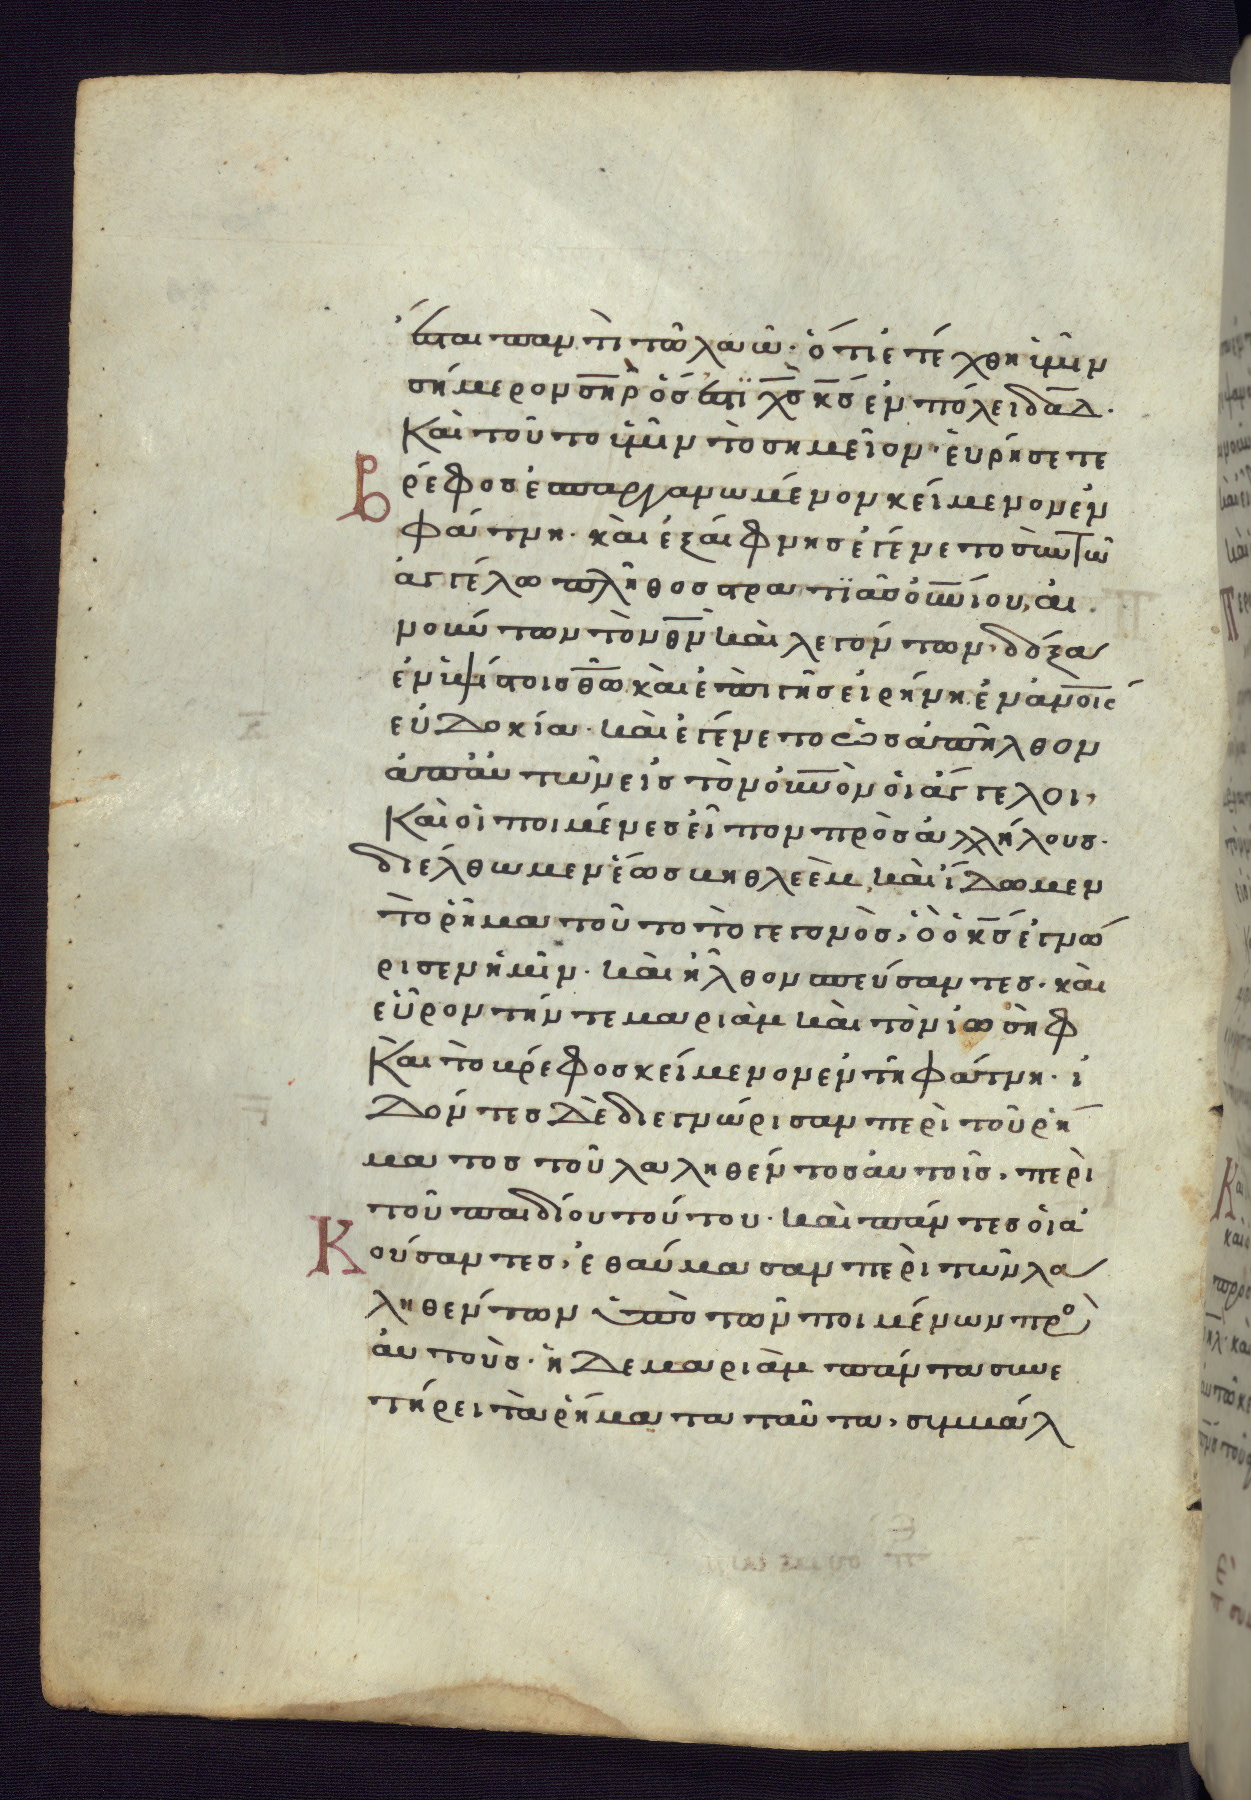 ἔσται παντὶ τῶ λαῶ· ὅτι ἐτέχθη ὑμῖν
σήμερον σ̅η̅ρ̅ ὅς ἐστι χ̅ς̅ κ̅ς̅ ἐν πόλει δ̅α̅δ̅·
Καὶ τοῦτο ὑμῖν τὸ σημεῖον· εὑρήσετε
Βρέφος ἐσπαργανωμένον κείμενον ἐν
φάτνη· καὶ ἐξαίφνης ἐγένετο σὺν τῶ
ἀγγέλω πλῆθος στρατϊᾶς ο̅υ̅νίου, αἰ
νούντων τὸν θ̅ν̅ καὶ λεγόντων, δόξα
ἐν ὑψίστοις θ̅ω̅ καὶ ἐπὶ γῆς εἰρήνη ἐν α̅ν̅οις
εὐδοκία· καὶ ἐγένετο ὡς ἀπῆλθον
ἀπ' αὐτῶν εἰς τὸν ο̅υ̅νὸν οἱ ἄγγελοι,
Καὶ οἱ ποιμένες εἶπον πρὸς ἀλλήλους·
διέλθωμεν ἕως βηθλεὲμ, καὶ ἴδωμεν
τὸ ῥῆμα τοῦτο τὸ γεγονὸς, ὃ ὁ κ̅ς̅ ἐγνώ
ρισεν ἡμῖν· καὶ ἦλθον σπεύσαντες· καὶ
εὗρον τήν τε μαριὰμ καὶ τὸν ἰωσὴφ
Καὶ τὸ βρέφος κείμενον ἐν τῆ φάτνη· ἰ
δόντες δὲ διεγνώρισαν περὶ τοῦ ῥή
ματος τοῦ λαληθέντος αὐτοῖς, περὶ
τοῦ παιδίου τούτου· καὶ πάντες οἱ ἀ
Κούσαντες, ἐθαύμασαν περὶ τῶν λα
ληθέντων ὑπὸ τῶν ποιμένων πρὸ
αὐτούς· ἡ δε μαριὰμ πάντα συνε
τήρει τὰ ῥήματα ταῦτα, συμβάλ